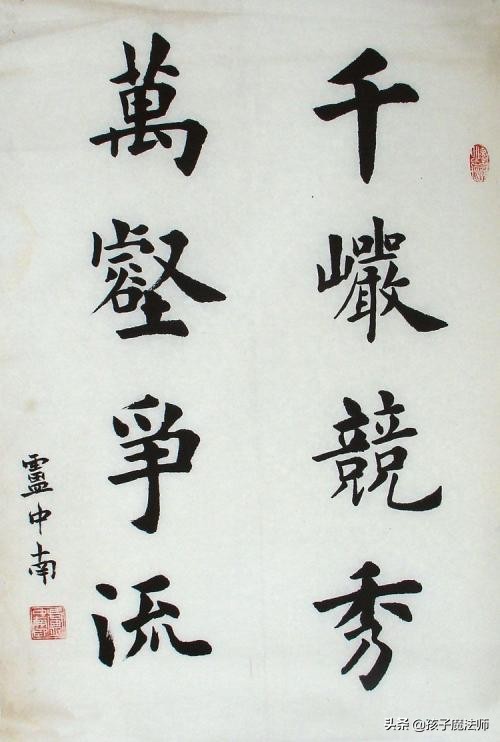 千巗競秀
萬壑爭流
盧中南
头条 @孩子魔法师